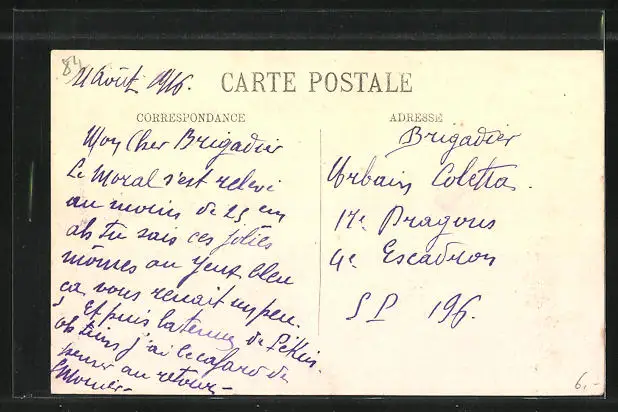 84
21 Août 1916.
CARTE POSTALE
CORRESPONDANCE
ADRESSE
Mon Cher Brigadier
Le Moral s'est relevé
au moins de 25 cm
ah tu sais ces jolies
mômes au yeux bleu
ça vous remait un peu.
Et puis la tenue de
ah tiens j'ai le cafard de
penser au retour-
Brigadier
Urbain Coletta.
17e Dragons
4e Escadron
SP 196.
6,-